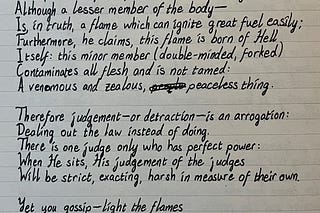 Although a lesser member of the body—
Is, in truth, a flame which can ignite great fuel easily;
Furthermore, he claims, this flame is born of Hell
Itself: this minor member (double-minded, forked)
Contaminates all flesh and is not tamed:
A venomous and zealous, peaceless thing.

Therefore judgement—or detraction—is an arrogation:
Dealing out the law instead of doing.
There is one judge only who has perfect power:
When He sits, His judgement of the judges
Will be strict, exacting, harsh in measure of their own.

Yet you gossip—light the flames